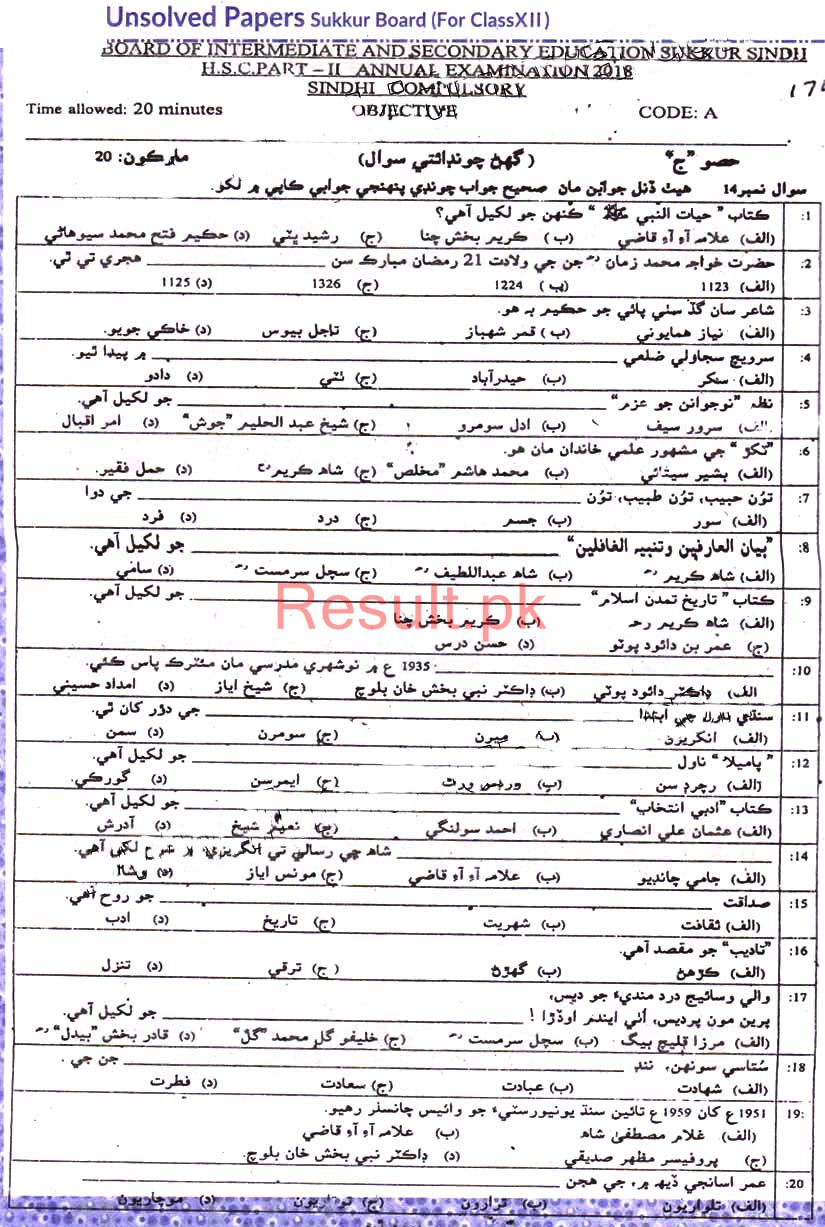 Unsolved Papers Sukkur Board (For ClassXII)
BOARD OF INTERMEDIATE AND SECONDARY EDUCATION SUKKUR SINDH
H.S.C.PART – II ANNUAL EXAMINATION 2018
SINDHI COMPULSORY
Time allowed: 20 minutes OBJECTIVE CODE: A
حصو ”ج“ (گهڻ چونڊائتي سوال) مارڪون: 20
سوال نمبر14 هيٺ ڏنل جوابن مان صحيح جواب چونڊي پنهنجي جوابي ڪاپي ۾ لکو.
1: ڪتاب ”حيات النبي ﷺ“ ڪنهن جو لکيل آهي؟
(الف) علامه آءِ آءِ قاضي (ب) ڪريم بخش چنا (ج) رشيد ڀٽي (د) حڪيم فتح محمد سيوهاڻي
2: حضرت خواجه محمد زمان رح جن جي ولادت 21 رمضان مبارڪ سن ______ هجري تي ٿي.
(الف) 1123 (ب) 1224 (ج) 1326 (د) 1125
3: شاعر سان گڏ سٺي پائي جو حڪيم به هو.
(الف) نياز همايوني (ب) قمر شهباز (ج) تاجل بيوس (د) خاڪي جويو.
4: سرويچ سجاولي ضلعي ______ ۾ پيدا ٿيو.
(الف) سکر (ب) حيدرآباد (ج) ٺٽي (د) دادو
5: نظم ”نوجوانن جو عزم“ ______ جو لکيل آهي.
(الف) سرور سيف (ب) ادل سومرو (ج) شيخ عبدالحليم ”جوش“ (د) امر اقبال
6: ”ٽکڙ“ جي مشهور علمي خاندان مان هو.
(الف) بشير سيٿائي (ب) محمد هاشم ”مخلص“ (ج) شاھ ڪريم رح (د) حمل فقير.
7: تون حبيب، تون طبيب، تون ______ جي دوا
(الف) سور (ب) جسم (ج) درد (د) فرد
8: ”بيان العارفين وتنبيه الغافلين“ ______ جو لکيل آهي.
(الف) شاھ ڪريم رح (ب) شاھ عبداللطيف رح (ج) سچل سرمست رح (د) سامي
9: ڪتاب ”تاريخ تمدن اسلام“ ______ جو لکيل آهي.
(الف) شاھ ڪريم رح (ب) ڪريم بخش چنا
(ج) عمر بن دائود پوٽو (د) حسن درس
10: ______ 1935 ع ۾ نوشهري مدرسي مان مئٽرڪ پاس ڪئي.
(الف) ڊاڪٽر دائود پوٽي (ب) ڊاڪٽر نبي بخش خان بلوچ (ج) شيخ اياز (د) امداد حسيني
11: سنڌي ناول جي ابتدا ______ جي دؤر کان ٿي.
(الف) انگريزن (ب) ميرن (ج) سومرن (د) سمن
12: ”پاميلا“ ناول ______ جو لکيل آهي.
(الف) رچرڊسن (ب) ورڊس ورٿ (ج) ايمرسن (د) گورڪي
13: ڪتاب ”ادبي انتخاب“ ______ جو لکيل آهي.
(الف) عثمان علي انصاري (ب) احمد سولنگي (ج) نعيم شيخ (د) آدرش
14: ______ شاھ جي رسالي تي انگريزي ۾ شرح لکي آهي.
(الف) جامي چانڊيو (ب) علامه آءِ آءِ قاضي (ج) مونس اياز (د) وشال
15: صداقت ______ جو روح آهي.
(الف) ثقافت (ب) شهريت (ج) تاريخ (د) ادب
16: ”تاديب“ جو مقصد آهي.
(الف) ڪڙهڻ (ب) گهڙڻ (ج) ترقي (د) تنزل
17: والي وسائيج درد منديءَ جو ديس،
پرين مون پرديس، اُٺي ايندم اوڏڙا! ______ جو لکيل آهي.
(الف) مرزا قليچ بيگ (ب) سچل سرمست رح (ج) خليفو گل محمد ”گل“ (د) قادر بخش ”بيدل“ رح
18: سُتاسي سونهن، ننڊ ______ جن جي.
(الف) شهادت (ب) عبادت (ج) سعادت (د) فطرت
19: 1951 ع کان 1959 ع تائين سنڌ يونيورسٽيءَ جو وائيس چانسلر رهيو.
(الف) غلام مصطفيٰ شاھ (ب) علامه آءِ آءِ قاضي
(ج) پروفيسر مظهر صديقي (د) ڊاڪٽر نبي بخش خان بلوچ.
20: عمر اسانجي ڏيھ ۾، جي هجن ______
(الف) تلواريون (ب) ترارون (ج) تواريون (د) موچاريون
Result.pk